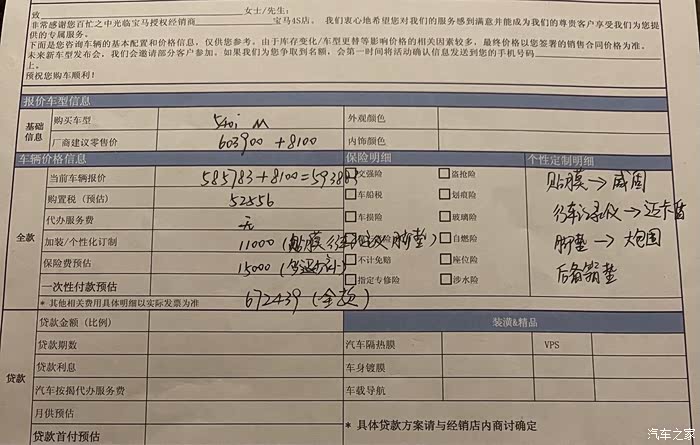 致 女士/先生:
非常感谢您百忙之中光临宝马授权经销商 宝马4S店。 我们衷心地希望您对我们的服务感到满意并能成为我们的尊贵客户享受我们为您提供
的专属服务。
下面是您咨询车辆的基本配置和价格信息，仅供您参考。由于库存变化/车型更替等影响价格的相关因素较多，最终价格以您签署的销售合同价格为准。
未来新车型发布会，我们会邀请部分客户参加。如果我们为您争取到名额，会第一时间将活动确认信息发送到您的手机号码
上。
预祝您购车顺利！
报价车型信息
基础信息 购买车型 540i M 外观颜色
厂商建议零售价 603900 +8100 内饰颜色
车辆价格信息 保险明细 个性定制明细
全款 当前车辆报价 585783+8100=593883 交强险 盗抢险 贴膜→威固
购置税（预估） 52556 车船税 划痕险 行车记录仪→迈卡酋
代办服务费 无 车损险 玻璃险
加装/个性化订制 11000（贴膜 行车记录仪 脚垫） 自燃险 脚垫→大包围
保险费预估 15000 不计免赔 座位险 后备箱垫
一次性付款预估 672439（全款） 指定专修险 涉水险
* 其他相关费用具体明细以实际发票为准
贷款 贷款金额（比例） 装潢&精品
贷款期数 汽车隔热膜 VPS
贷款利息 车身镀膜
汽车按揭代办服务费 车载导航
月供预估
* 具体贷款方案请与经销店内商讨确定
贷款首付预估
汽车之家